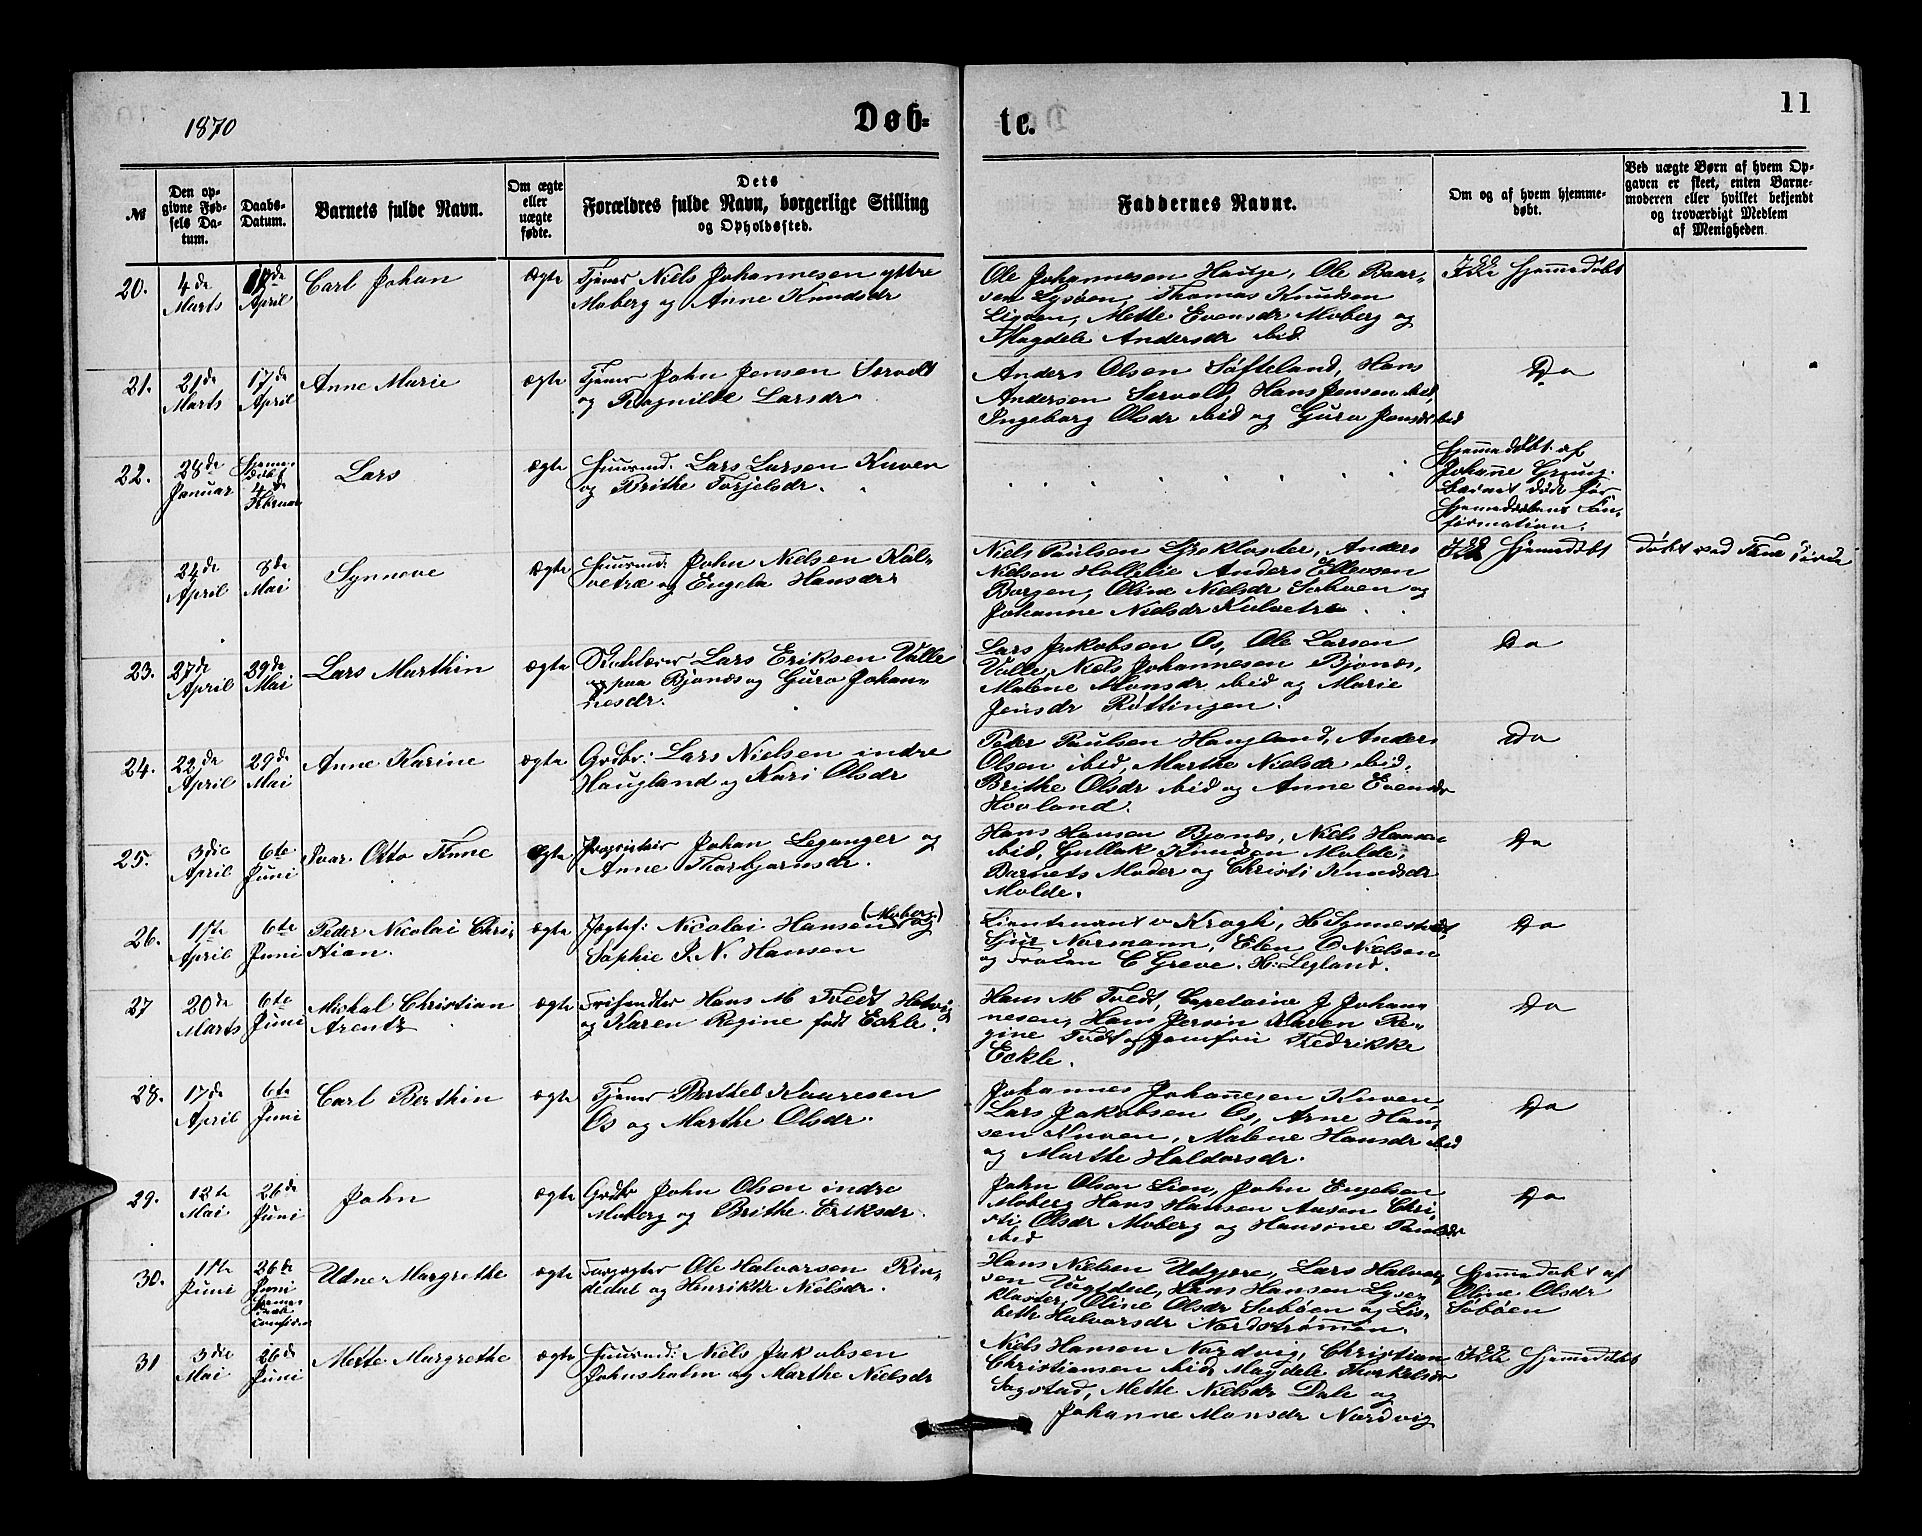 1870
Døb-
te.
11
№
Den op-
givne Fød-
sels Da-
tum.
Daabs-
Datum.
Barnets fulde Navn.
Om ægte
eller
uægte
fødte.
Dets
Forældres fulde Navn, borgerlige Stilling
og Opholdssted.
Faddernes Navne.
Om og af hvem hjemme-
døbt.
Ved uægte Børn af hvem Op-
gaven er skeet, enten Barne-
moderen eller hvilket bekjendt
og troværdigt Medlem
af Menigheden.
20.
4de
Marts
17de
April
Carl Johan
Ægte
Tjener Niels Johannesen yttre
Moberg og Anne Knudsdr
Ole Johannesen Hauge, Ole Baar-
sen Lysøen, Thomas Knudsen
Ligøen, Mette Evensdr Moberg og
Magdele Andersdr ibid.
Ikke Hjemmedøbt
21.
21de
Marts
17de
April
Anne Marie
ægte
Tjener John Jensen Servold
og Ragnilde Larsdr.
Anders Olsen Søfteland, Hans
Andersen Servold, Hans Jensen ibid,
Ingeborg Olsdr ibid og Guro Jensdr ibid
Do
22.
28de
Januar
Hjemme-
døbt
4de
Februar
Lars
ægte
Huusmd. Lars Larsen Kuven
og Brithe Torjelsdr.
Hjemmedøbt af
Johanne Grung.
Barnet døde før
Hjemmedaabens Con-
firmation.
24de
April
8de
Mai
Synneve
ægte
Huusmd. John Nielsen Kal-
vetræ og Engela Hansdr
Niels Paulsen Lysekloster, Anders
Nielsen Hollelie Anders Ellevsen
Borgen, Oline Nielsdr Søhoen og
Johanne Nielsdr Kalvetræ
Ikke Hjemmedøbt
døbt ved Fane Kirke
23.
27de
April
29de
Mai
Lars Marthin
ægte
Skolelærer Lars Eriksen Valle
paa Bjonæs og Guro Johan-
nesdr.
Lars Jakobsen Os, Ole Larsen
Valle, Niels Johannesen Bjonæs,
Malene Monsdr ibid og Marie
Jensdr Røttingen.
Do
24.
22de
April
29de
Mai
Anne Karine
ægte
Grdbr: Lars Nielsen indre
Haugland og Kari Olsdr
Peder Paulsen Haugland, Anders
Olsen ibid, Marthe Nielsdr ibid,
Brithe Olsdr ibid og Anne Evensdr
Hovland.
Do
25.
3die
April
6te
Juni
Ivar Otto Finne
ægte
Proprietær Johan Leganger og
Anne Thorbjørnsdr.
Hans Hansen Bjonæs, Niels Hansen
ibid, Gullak Knudsen Molde,
Barnets Moder og Christi Knudsdr
Molde.
Do
26.
1ste
April
6te
Juni
Peder Nicolai Chri-
stian.
ægte
Jægtef: Nicolai Hansen (Moberg) og
Sophie P. N. Hansen
Lieutenant v Krogh, H Synnestvedt,
Sjur Normann, Elen O Nielsen
og Frøken C Greve. H: Legland.
Do
27
20de
Marts
6te
Juni
Michal Christian
Arentz
ægte
Frihandler Hans M Tvedt Hatvig
og Karen Regine født Eckle.
Hans M Tvedt, Capetaine J Johan-
nesen, Hans Jersin Karen Re-
gine Tvedt og Jomfru Fredrikke
Eckle.
Do
28.
17de
April
6te
Juni
Carl Berthin
ægte
Tjener Berthel Kaaresen
Os og Marthe Olsdr.
Johannes Johannesen Kuven,
Lars Jakobsen Os, Arne Han-
sen Kuven, Malene Hansdr ibid
og Marthe Haldorsdr.
Do
29.
12te
Mai
26de
Juni
John
ægte
Grdbr John Olsen indre
Moberg og Brithe Eriksdr.
John Olsen Lien, John Engelsen
Moberg Hans Hansen Aasen Chri-
sti Olsdr Moberg og Hansine Paulsdr
ibid
Do
30.
11te
Juni
26de
Juni
Hjemme-
daab
confirm
Udne Margrethe
ægte
Ole Halvorsen Rin-
dedal og Henrikke Nielsdr.
Hans Nielsen Udgjøre, Lars Halvor-
sen Vugtdal, Hans Hansen Lyse-
kloster, Oline Olsdr Søbøen og Lis-
beth Halvorsdr Nordstrømøn.
Hjemmedøbt af
Oline Olsdr
Søbøen
31
3die
Mai
26de
Juni
Mette Margrethe
ægte
Huusmd: Niels Jakobsen
Johnsholm og Marthe Nielsdr
Niels Hansen Nordvig, Christian
Christiansen ibid, Magdele Thorkelsdr
Sagstad, Mette Nielsdr Dale og
Johanne Monsdr Nordvig
Ikke Hjemmedøbt